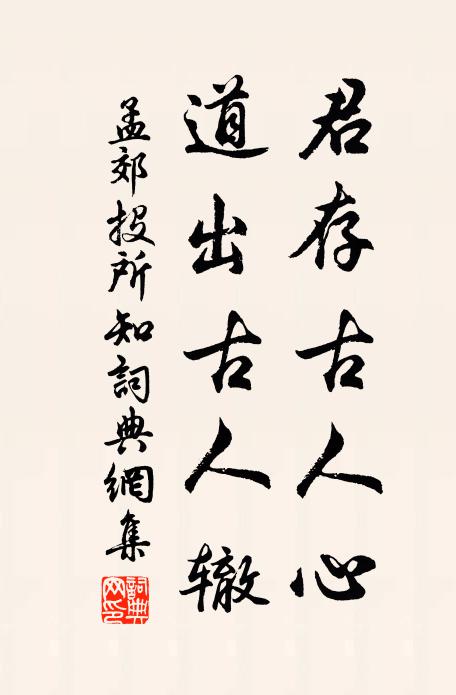 君存古人心
道出古人辙
孟郊投所知詞典網集
詞典網印